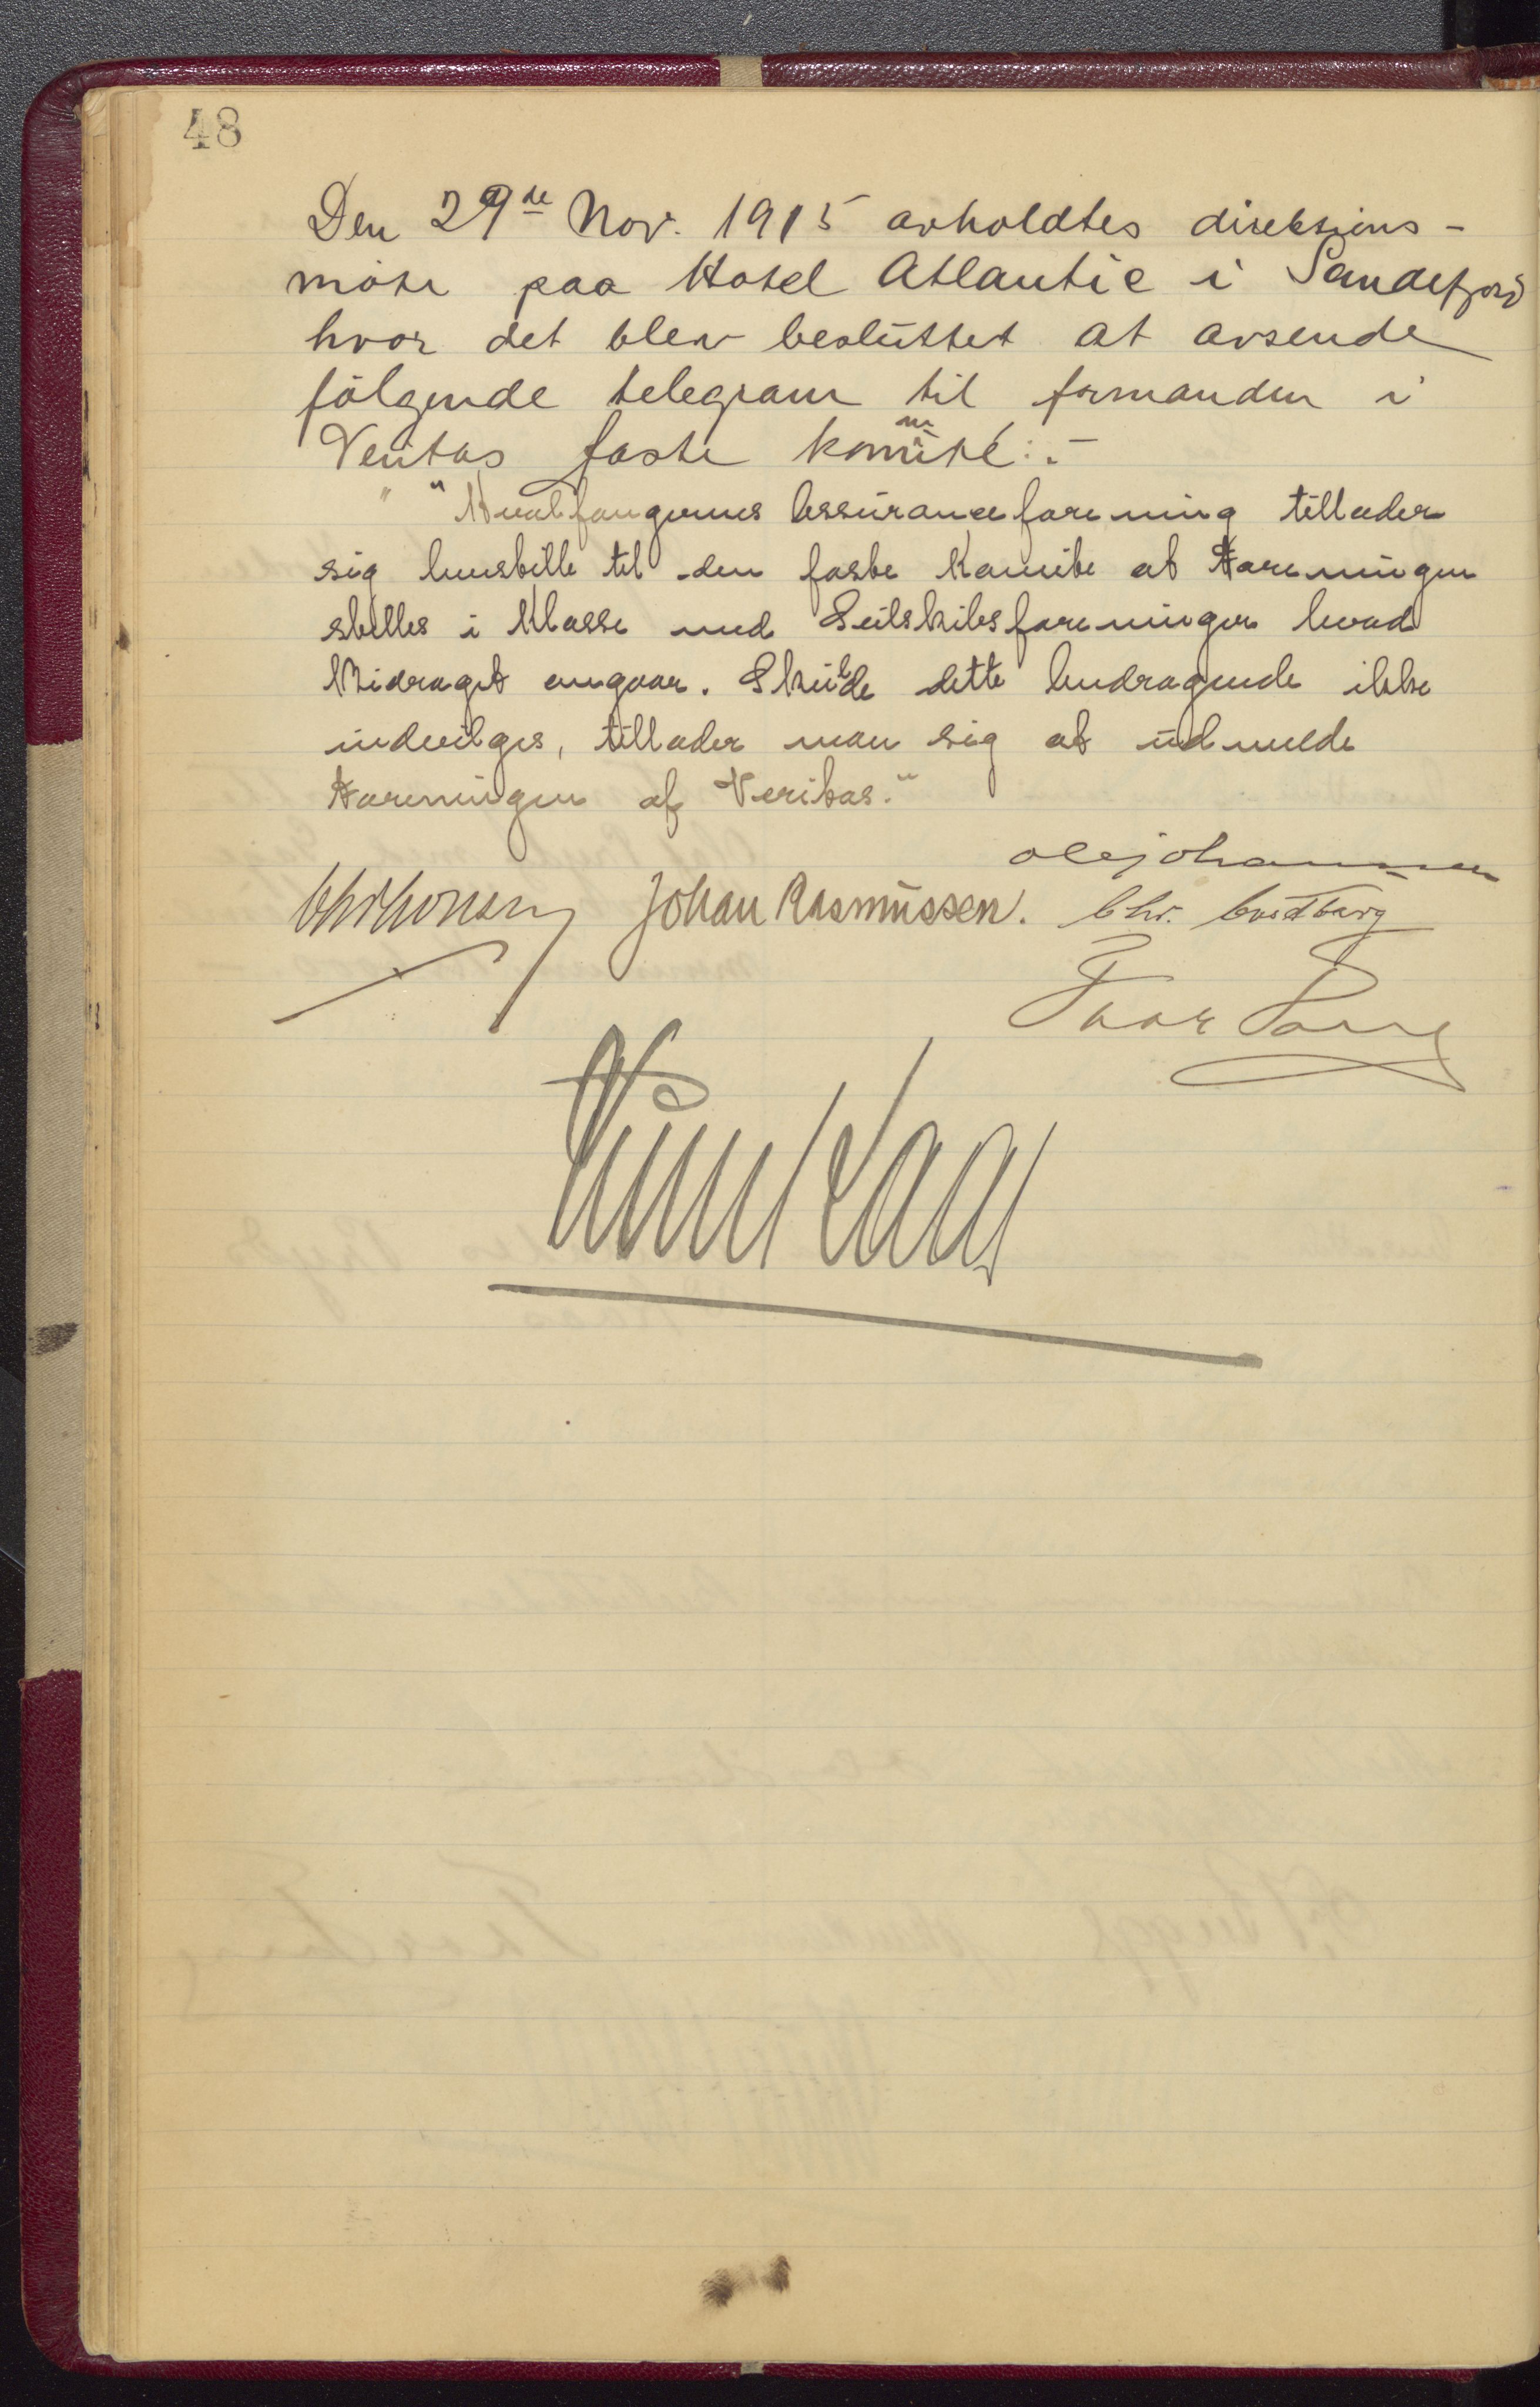 48
Den 29de Nov. 1915 avholdtes direksjons-
möte paa Hotel Atlantic i Sandefjord
hvor det blev besluttet at avsende
fölgende telegram til formanden i
Veritas faste kommité:-
"Hvalfangernes Assuranceforening tillader
sig henstille til den faste Komite at Foreningen
stilles i Klasse med Seilskibsforeninger hvad
Bidraget angaar. Skulde dette andragende ikke
indvilges, tillader man sig at udmelde
Foreningen af Veritas."
Ole Johannessen
Johan Rasmussen. Chr.
Thor Dahl